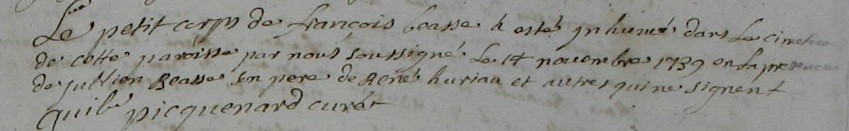 Le petit corps de françois boasse h esté Inhumé dans Le cimetiere
de cette paroisse par nous soussigné Le 14 novembre 1739 en La presence
de jullien Boasse son pere de René huriau et autres qui ne signent
picquenard curét